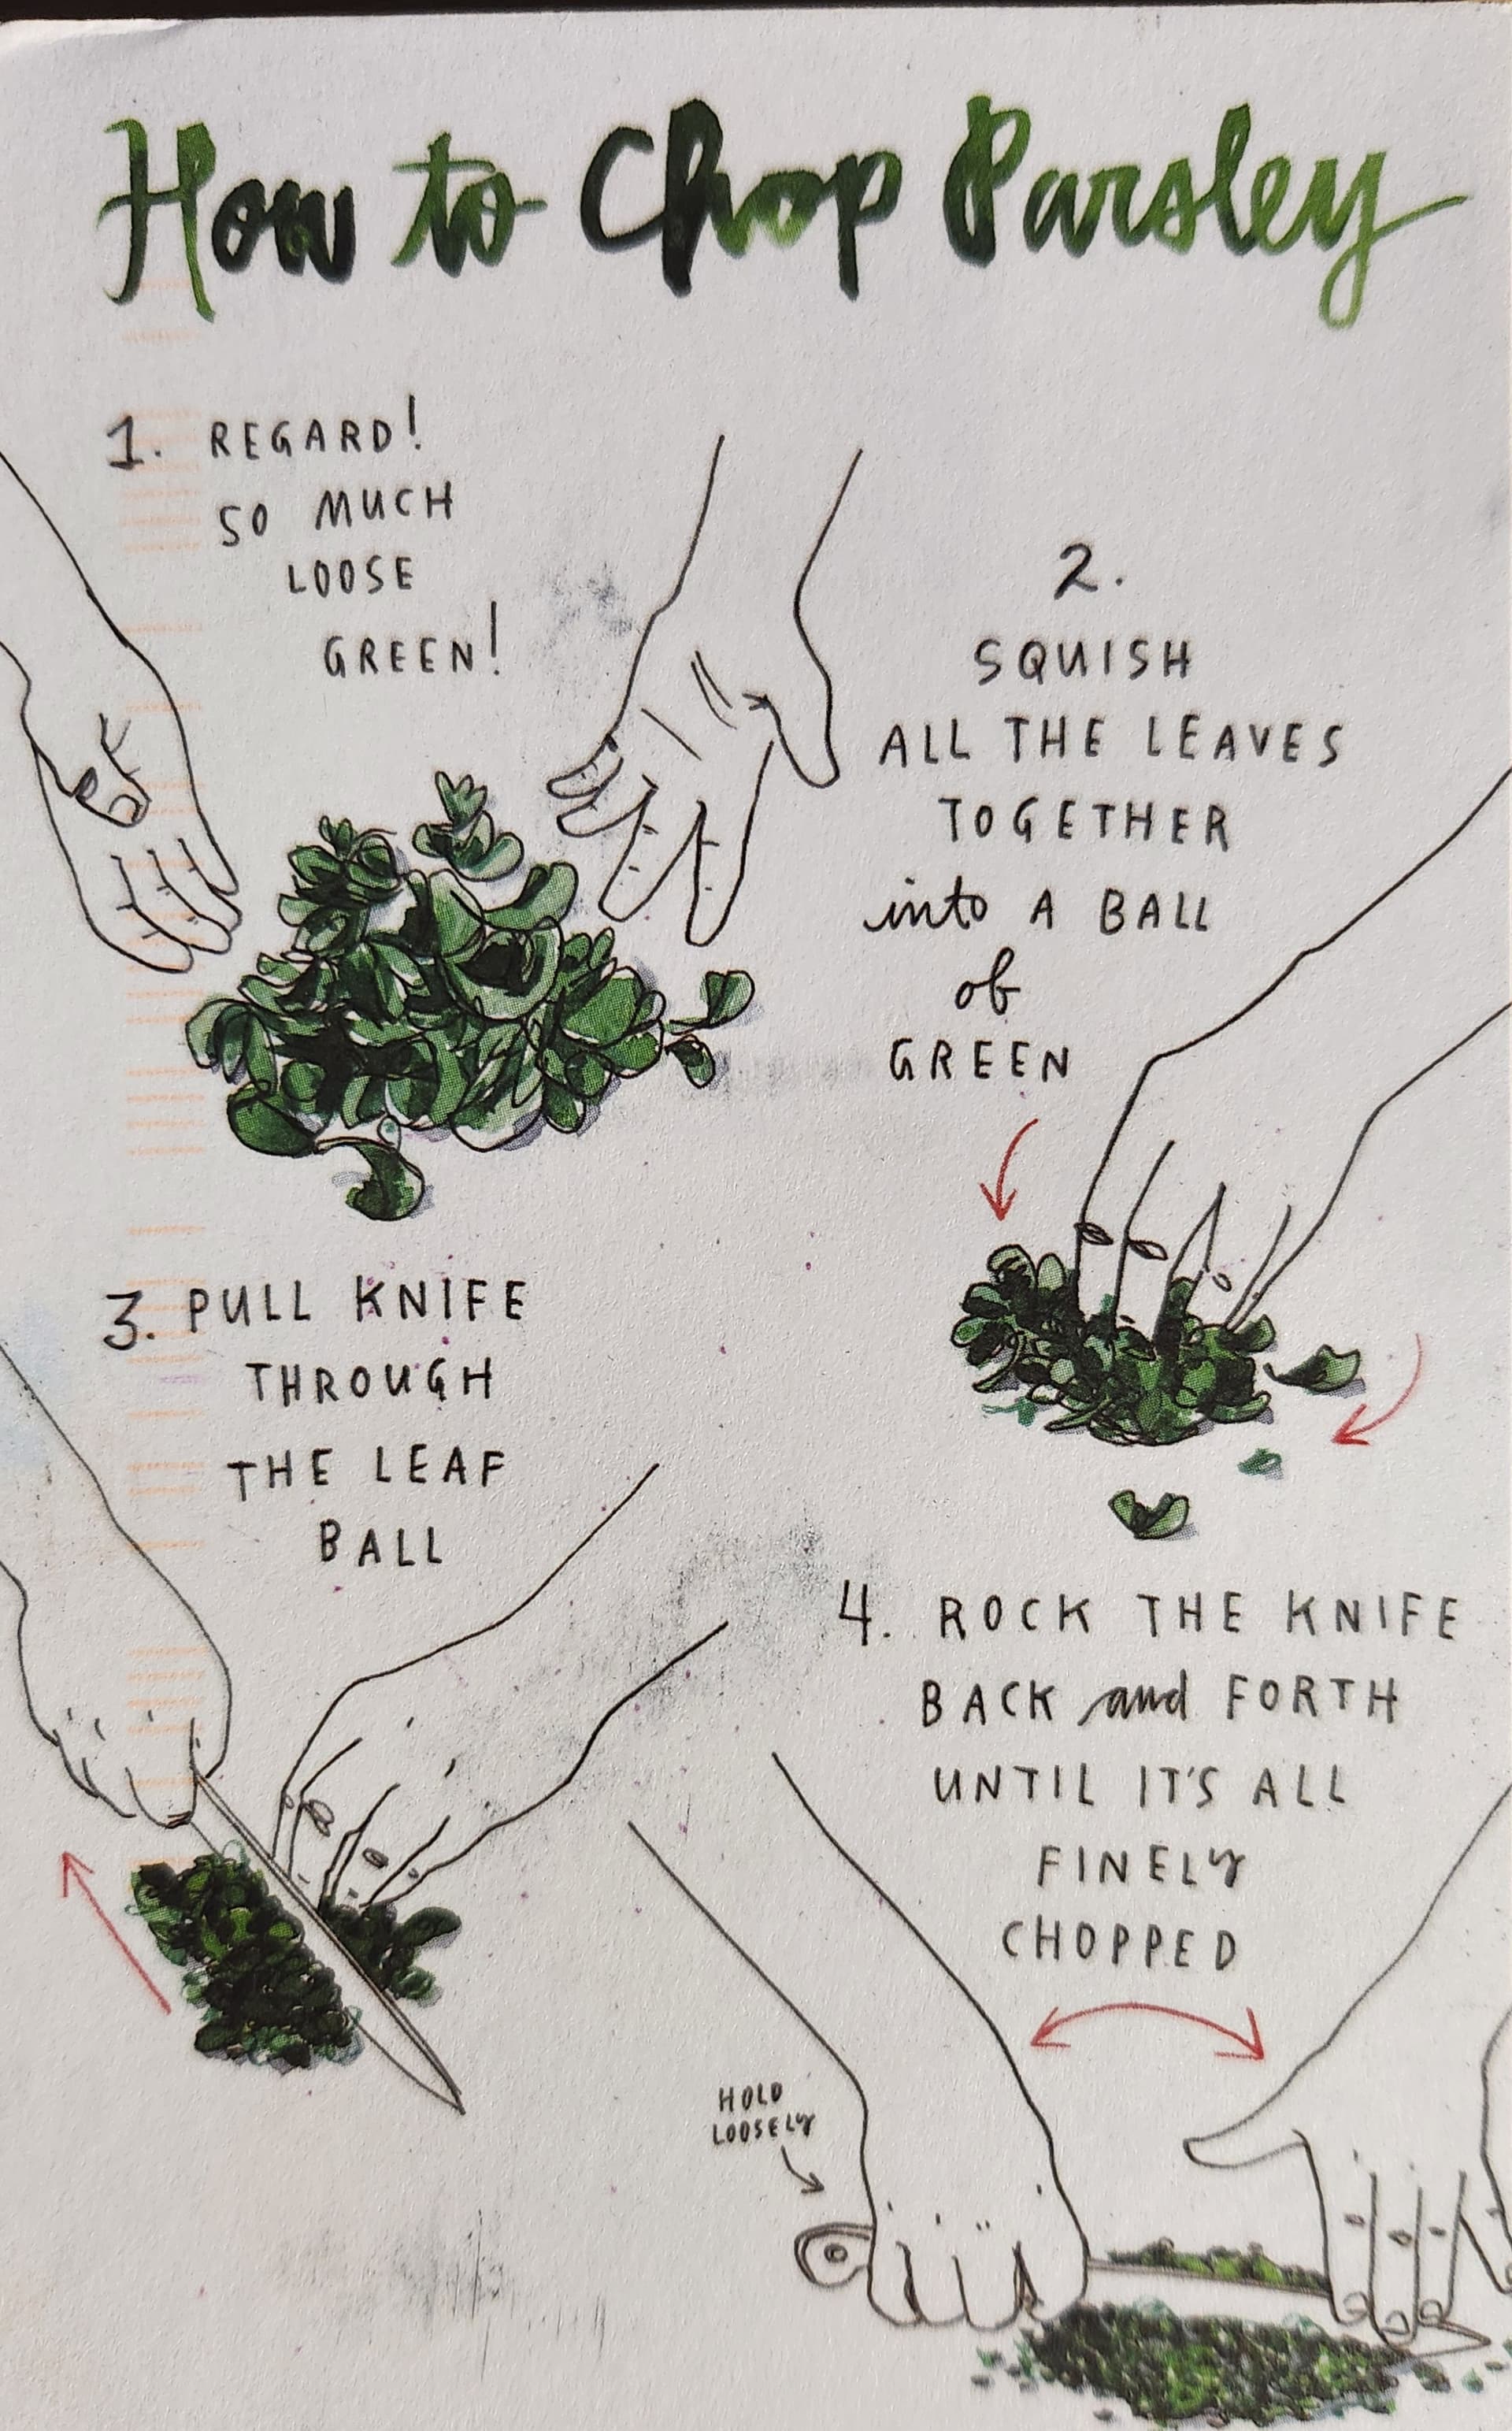 How to Chop Parsley
1. REGARD!
SO MUCH
LOOSE
GREEN!
2.
SQUISH
ALL THE LEAVES
TOGETHER
into A BALL
of
GREEN
3. PULL KNIFE
THROUGH
THE LEAF
BALL
4. ROCK THE KNIFE
BACK and FORTH
UNTIL IT'S ALL
FINELY
CHOPPED
HOLD
LOOSELY